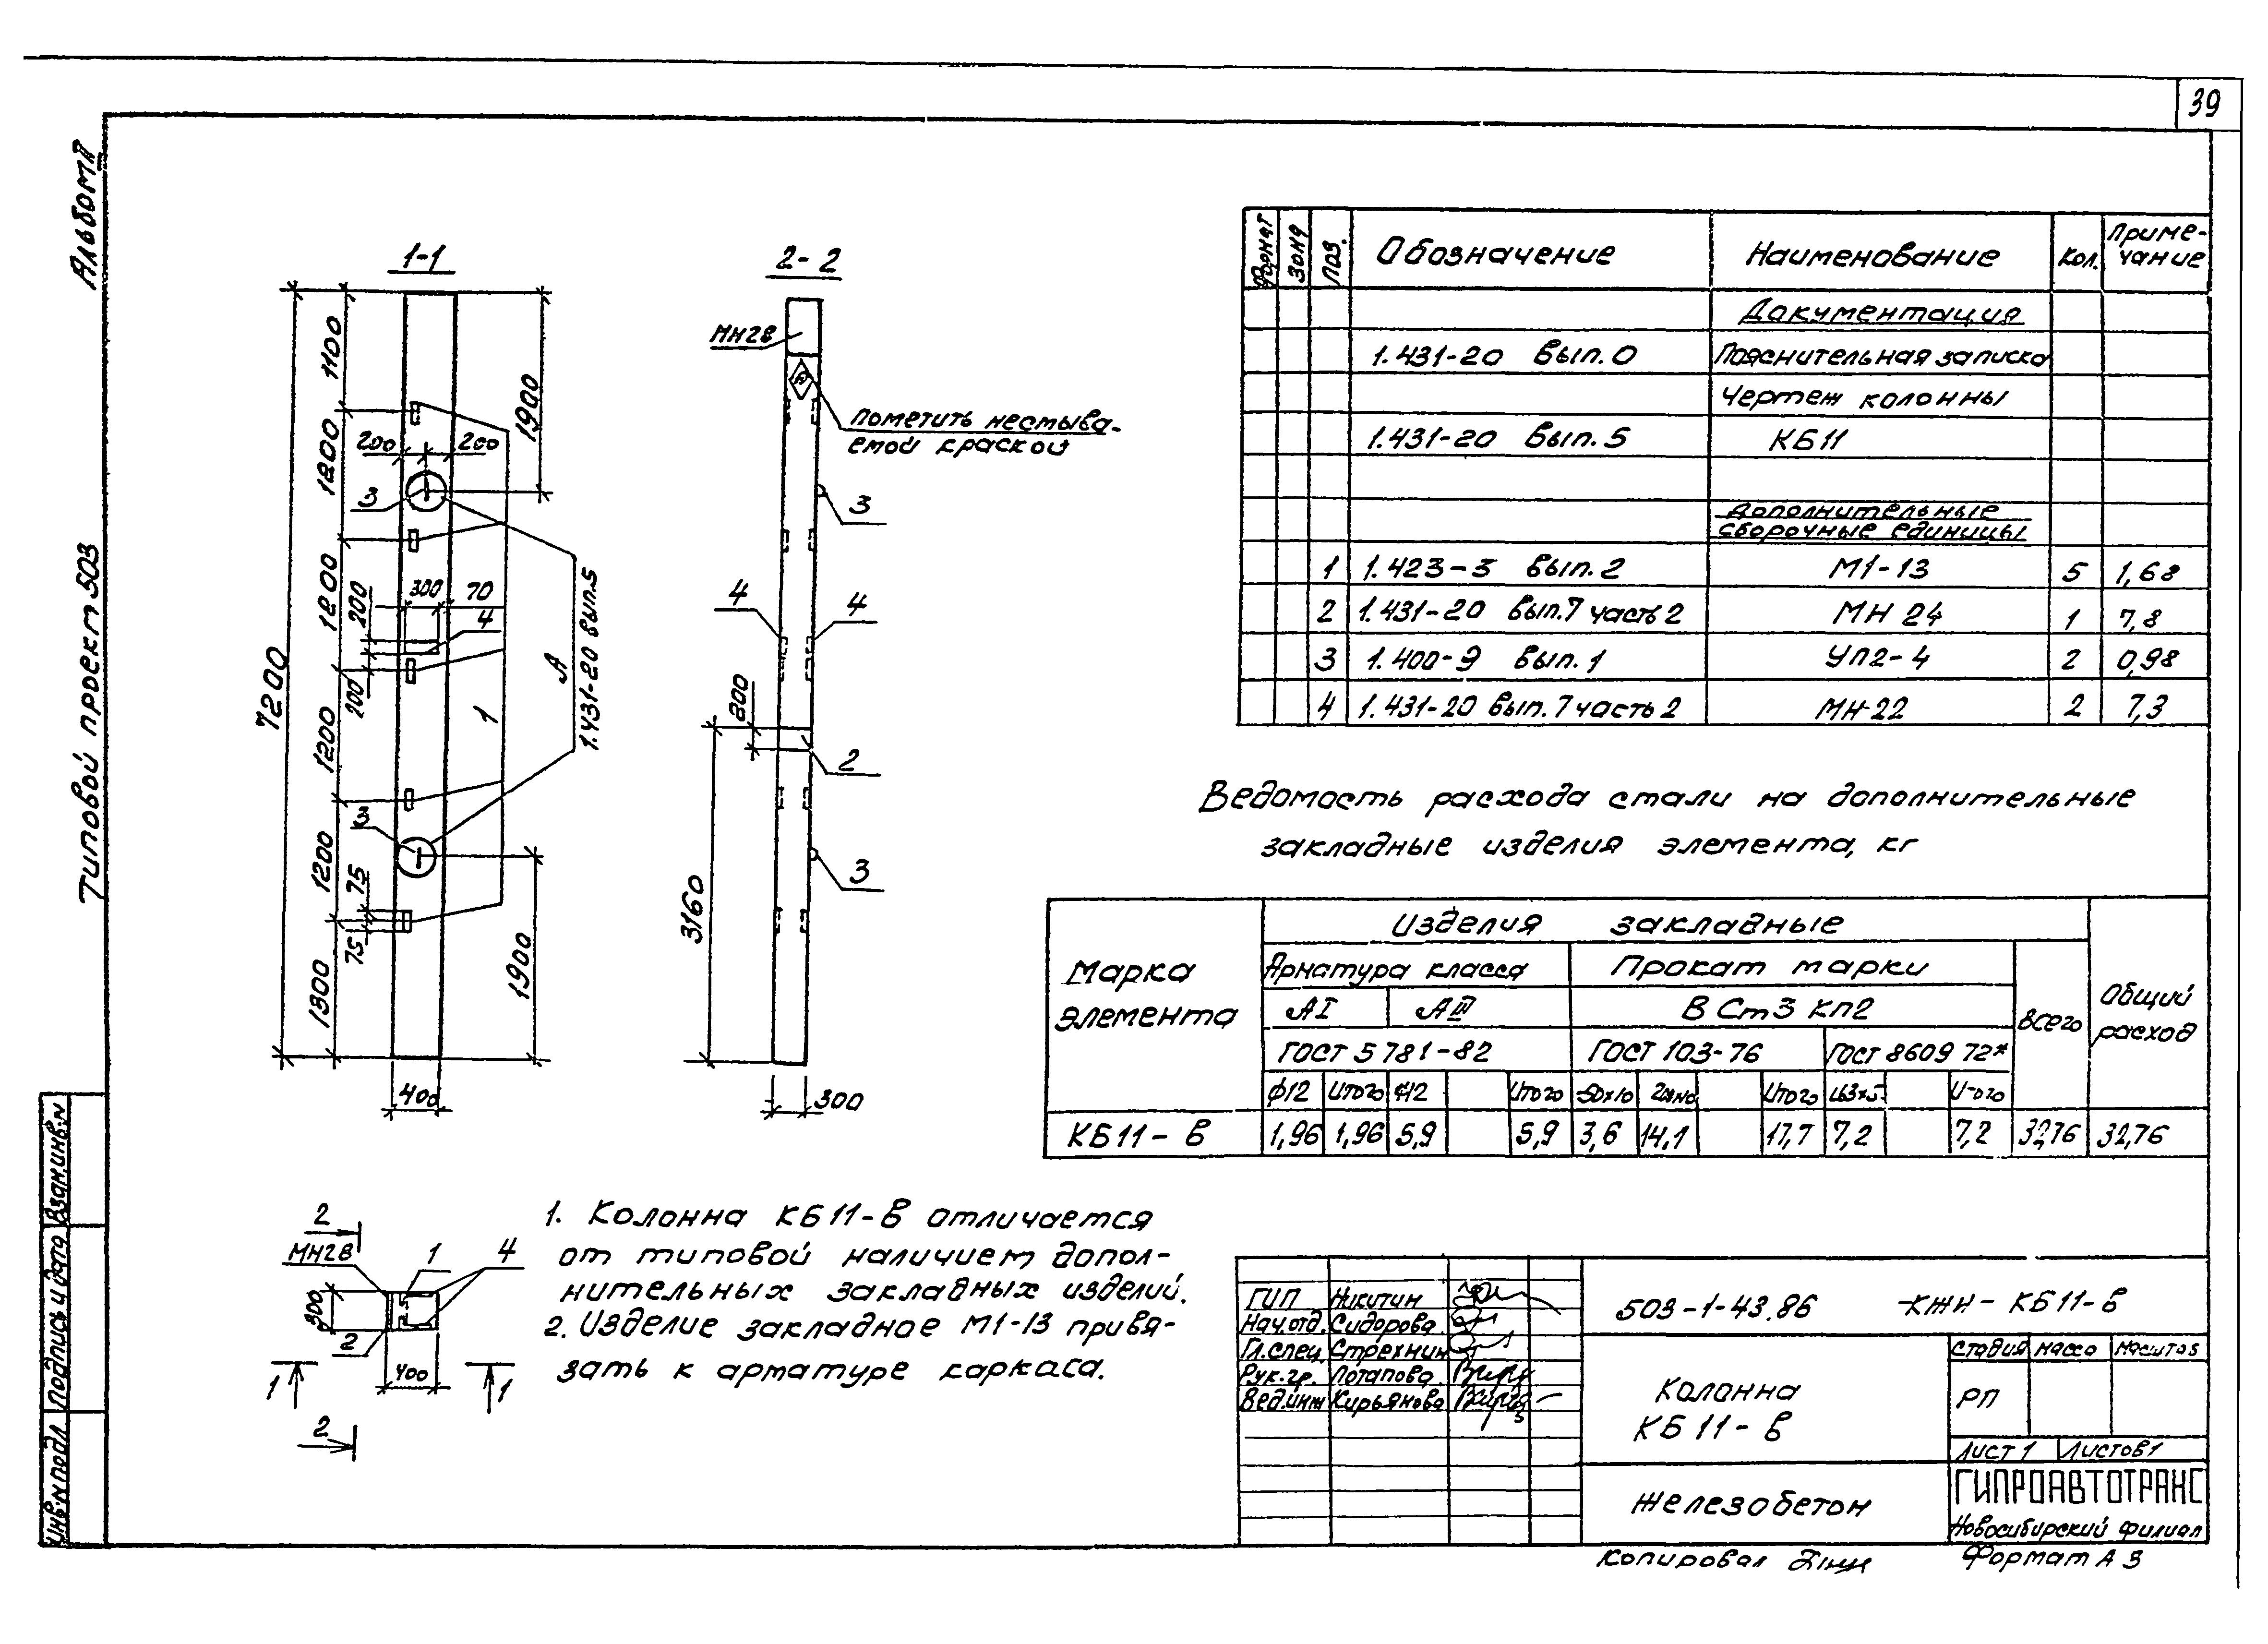 39
Альбом II
Типовой проект 503
1-1
7200
1100
1200
1200
1200
1200
1300
1900
1900
200
200
3
300
70
200
200
4
1
А
1.431-20 вып.5
3
75
75
400
2-2
МН28
пометить несмыва-
емой краской
3
4
4
200
2
3160
3
300
2
МН28
1
4
300
2
400
1
1
2
1. Колонна КБ11-в отличается
от типовой наличием допол-
нительных закладных изделий.
2. Изделие закладное М1-13 привя-
зать к арматуре каркаса.
Формат Зона Поз. Обозначение Наименование Кол. Приме-
чание
Документация
1.431-20 вып.0 Пояснительная записка
Чертеж колонны
1.431-20 вып.5 КБ11
Дополнительные
сборочные единицы
1 1.423-3 вып.2 М1-13 5 1,68
2 1.431-20 вып.7 часть 2 МН 24 1 7,8
3 1.400-9 вып.1 УП2-4 2 0,98
4 1.431-20 вып.7 часть 2 МН-22 2 7,3
Ведомость расхода стали на дополнительные
закладные изделия элемента, кг
Марка
элемента
Изделия закладные
Арматура класса Прокат марки
АI АIII В Ст3 кп2
ГОСТ 5781-82 ГОСТ 103-76 ГОСТ 8609 72*
Всего
Общий
расход
ф12 Итого ф12 Итого -50х10 Итого Итого
КБ11-в 1,96 1,96 5,9 5,9 3,6 14,1 17,7 7,2 7,2 32,76 32,76
ГИП Никитин
Нач.отд. Сидорова
Гл.спец. Стрехнин
Рук.гр. Потапова
Вед.инж Кирьянова
503-1-43.86 -КЖИ-КБ11-в
Колонна
КБ11-в
Стадия Масса Масштаб
РП
Лист 1 Листов 1
Железобетон
ГИПРОАВТОТРАНС
Новосибирский филиал
Копировал
Формат А3
Взам.инв.N
Подпись и дата
Инв.N подл